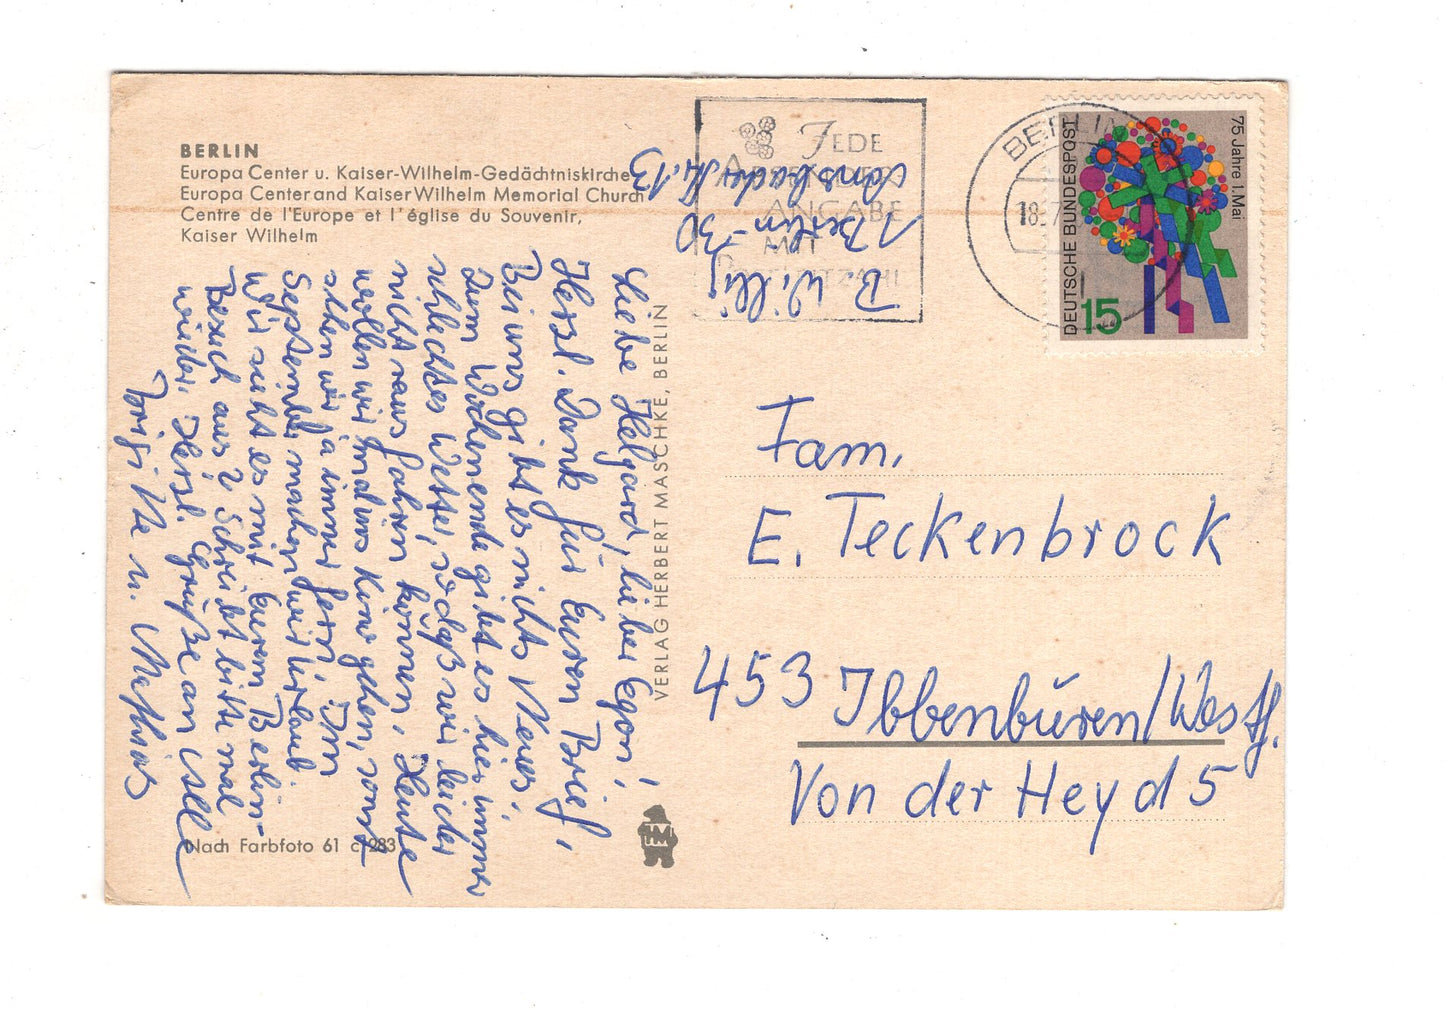 BERLIN
Europa Center u. Kaiser-Wilhelm-Gedächtniskirche
Europa Center and Kaiser Wilhelm Memorial Church
Centre de l'Europe et l'église du Souvenir,
Kaiser Wilhelm
Liebe Helgard, lieber Egon!
Herzl. Dank für Euren Brief,
Bei uns gibt es nichts Neues,
Zum Wochenende gibt es hier immer
schlechtes Wetter, sodaß wir leider
nicht raus fahren können, Heute
wollen wir mal ins Kino gehen, sonst
sehen wir ja immer fern. Im
September machen wir Urlaub.
Wie sieht es mit Eurem Berlin-
Besuch aus? Schreibt bitte mal
wieder, Herzl. Grüße an alle
u. Mathias
Nach Farbfoto 61 c 283
VERLAG HERBERT MASCHKE, BERLIN
HM
B Willig
1 Berlin-30
Ansbacher Str. 13
JEDE
ANGABE
MIT
POSTLEITZAHL
BERLIN
18.-7
75 Jahre 1. Mai
DEUTSCHE BUNDESPOST
15
Fam.
E. Teckenbrock
453 Ibbenbüren/Westf.
Von der Heyd 5